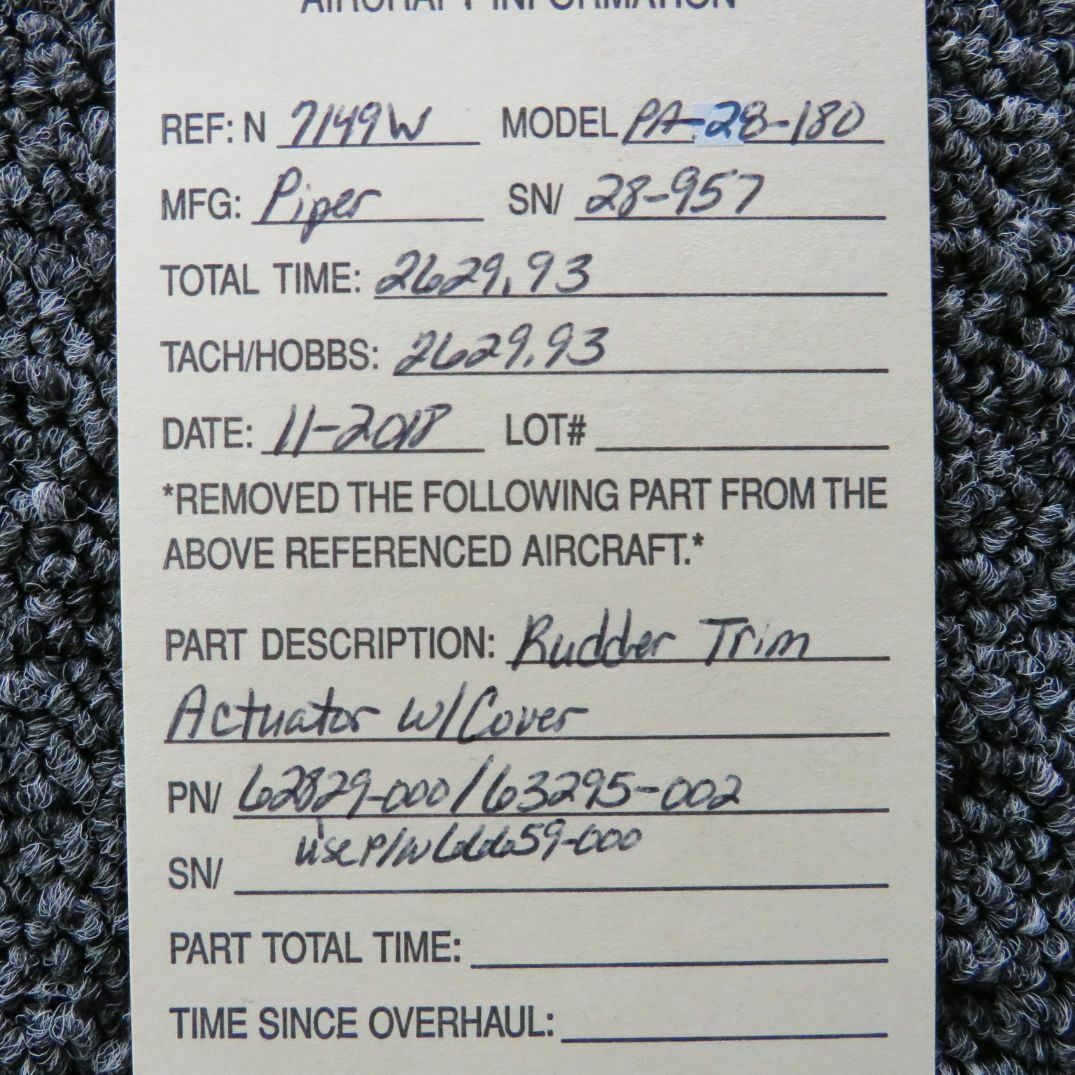 AIRCRAFT INFORMATION
REF: N 7149W MODEL PA-28-180
MFG: Piper SN/ 28-957
TOTAL TIME: 2629.93
TACH/HOBBS: 2629.93
DATE: 11-2018 LOT#
*REMOVED THE FOLLOWING PART FROM THE
ABOVE REFERENCED AIRCRAFT.*
PART DESCRIPTION: Rudder Trim
Actuator w/Cover
PN/ 62829-000/63295-002
use P/N 66659-000
SN/
PART TOTAL TIME:
TIME SINCE OVERHAUL: